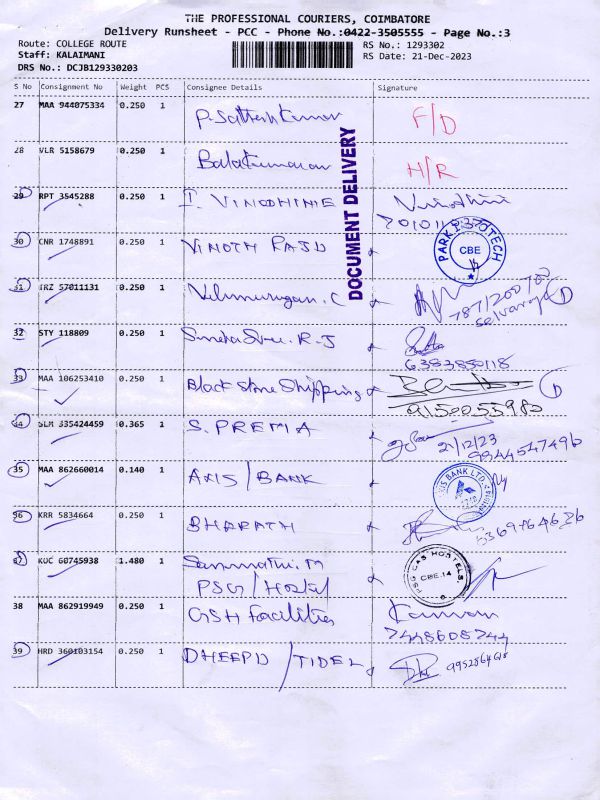 THE PROFESSIONAL COURIERS, COIMBATORE
Delivery Runsheet - PCC - Phone No.:0422-3505555 - Page No.:3
Route: COLLEGE ROUTE RS No.: 1293302
Staff: KALAIMANI RS Date: 21-Dec-2023
DRS No.: DCJB129330203
S No Consignment No Weight PCS Consignee Details Signature
27 MAA 944075334 0.250 1 P. Sathesh Kumar F/D
28 VLR 5158679 0.250 1 Balakumaran H/R
29 RPT 3545288 0.250 1 I. VINODHINIE
30 CNR 1748891 0.250 1 VINOTH RAJD
PARK CBE
31 TRZ 57011131 0.250 1 Velmurugan. C
selvaraj
32 STY 118809 0.250 1 R. J
6383850118
33 MAA 106253410 0.250 1 Black Stone Shipping
9150055980
34 SLM 335424459 0.365 1 S. PREMA
21/12/23
9844547496
35 MAA 862660014 0.140 1 AXIS/BANK
BANK LTD.
36 KRR 5834664 0.250 1 BHARATH
37 KUC 60745938 1.480 1 M
PSG/Hostel
PSG CAS HOSTELS CBE.14
38 MAA 862919949 0.250 1 GSH Facilities
Kannan
7448608744
39 HRD 360103154 0.250 1 DHEEPD /TIDEL
DOCUMENT DELIVERY